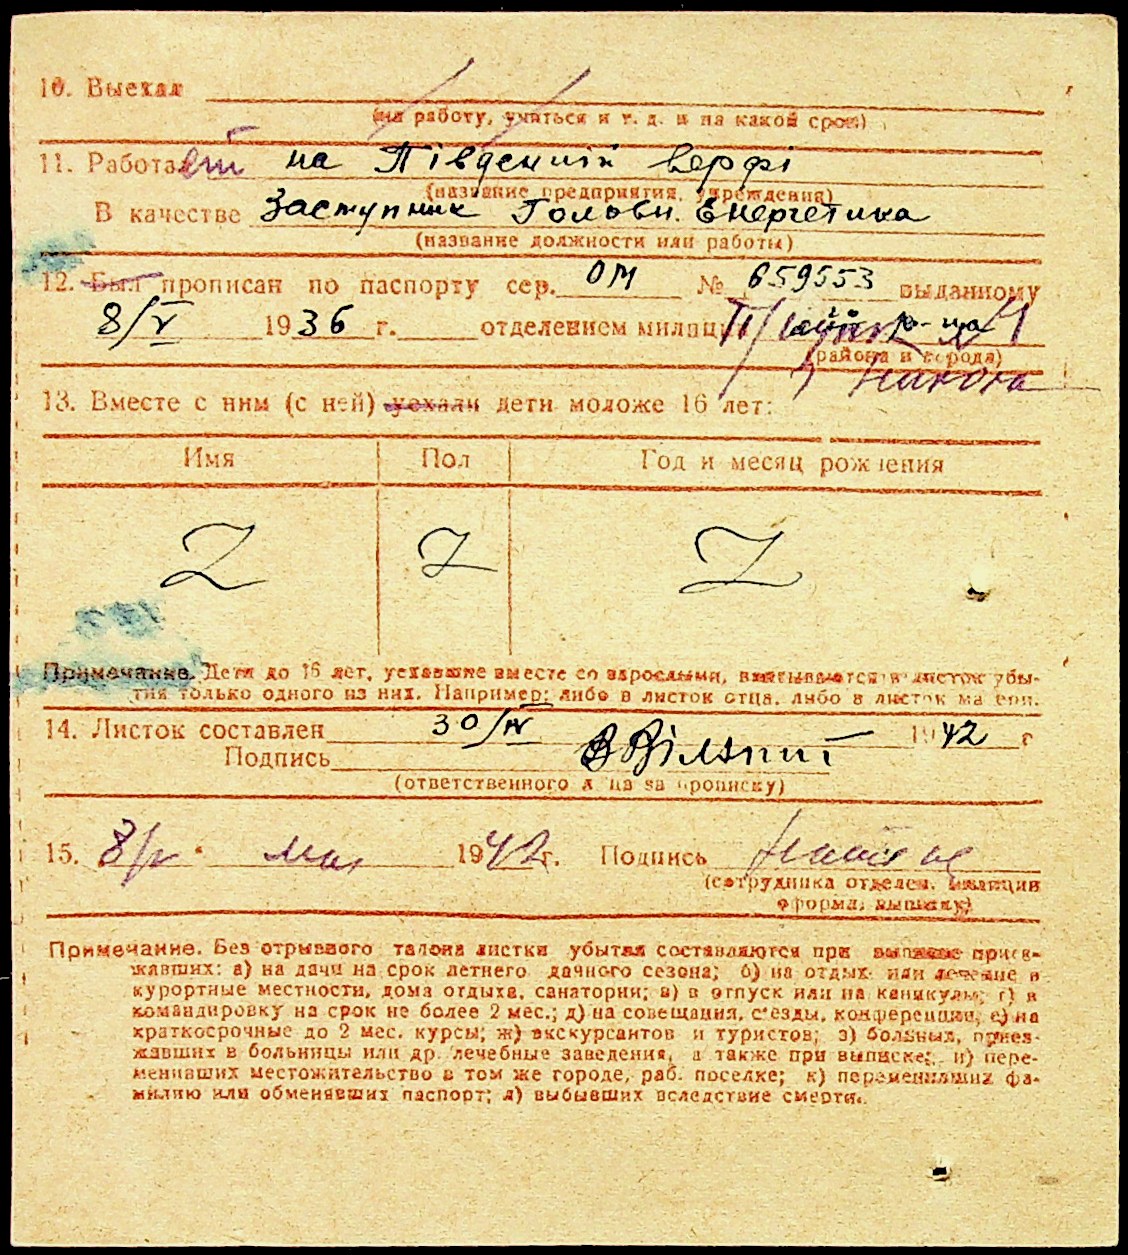 10. Выехал
(на работу, учиться и т. д. и на какой срок)
11. Работает на Південній верфі
(название предприятия, учреждения)
В качестве Заступник Головн. Енергетика
(название должности или работы)
12. Был прописан по паспорту сер. ОМ № 659553 выданному
8/V 1936 г. отделением милиции
(района и города)
13. Вместе с ним (с ней) уехали дети моложе 16 лет:
Имя Пол Год и месяц рождения
Z Z Z
Примечание. Дети до 16 лет, уехавшие вместе со взрослыми, вписываются в листок убы-
тия только одного из них. Например: либо в листок отца, либо в листок матери.
14. Листок составлен 30/IV 1942 г
Подпись
(ответственного лица за прописку)
15. 1942 г. Подпись
(сотрудника отделен. милиции
оформл. выписку)
Примечание. Без отрывного талона листки убытия составляются при выписке приез-
жавших: а) на дачи на срок летнего дачного сезона; б) на отдых или лечение в
курортные местности, дома отдыха, санатории; в) в отпуск или на каникулы; г) в
командировку на срок не более 2 мес.; д) на совещания, с'езды, конференции; е) на
краткосрочные до 2 мес. курсы; ж) экскурсантов и туристов; з) больных, приез-
жавших в больницы или др. лечебные заведения, а также при выписке: и) пере-
менивших местожительство в том же городе, раб. поселке; к) переменивших фа-
милию или обменявших паспорт; л) выбывших вследствие смерти.